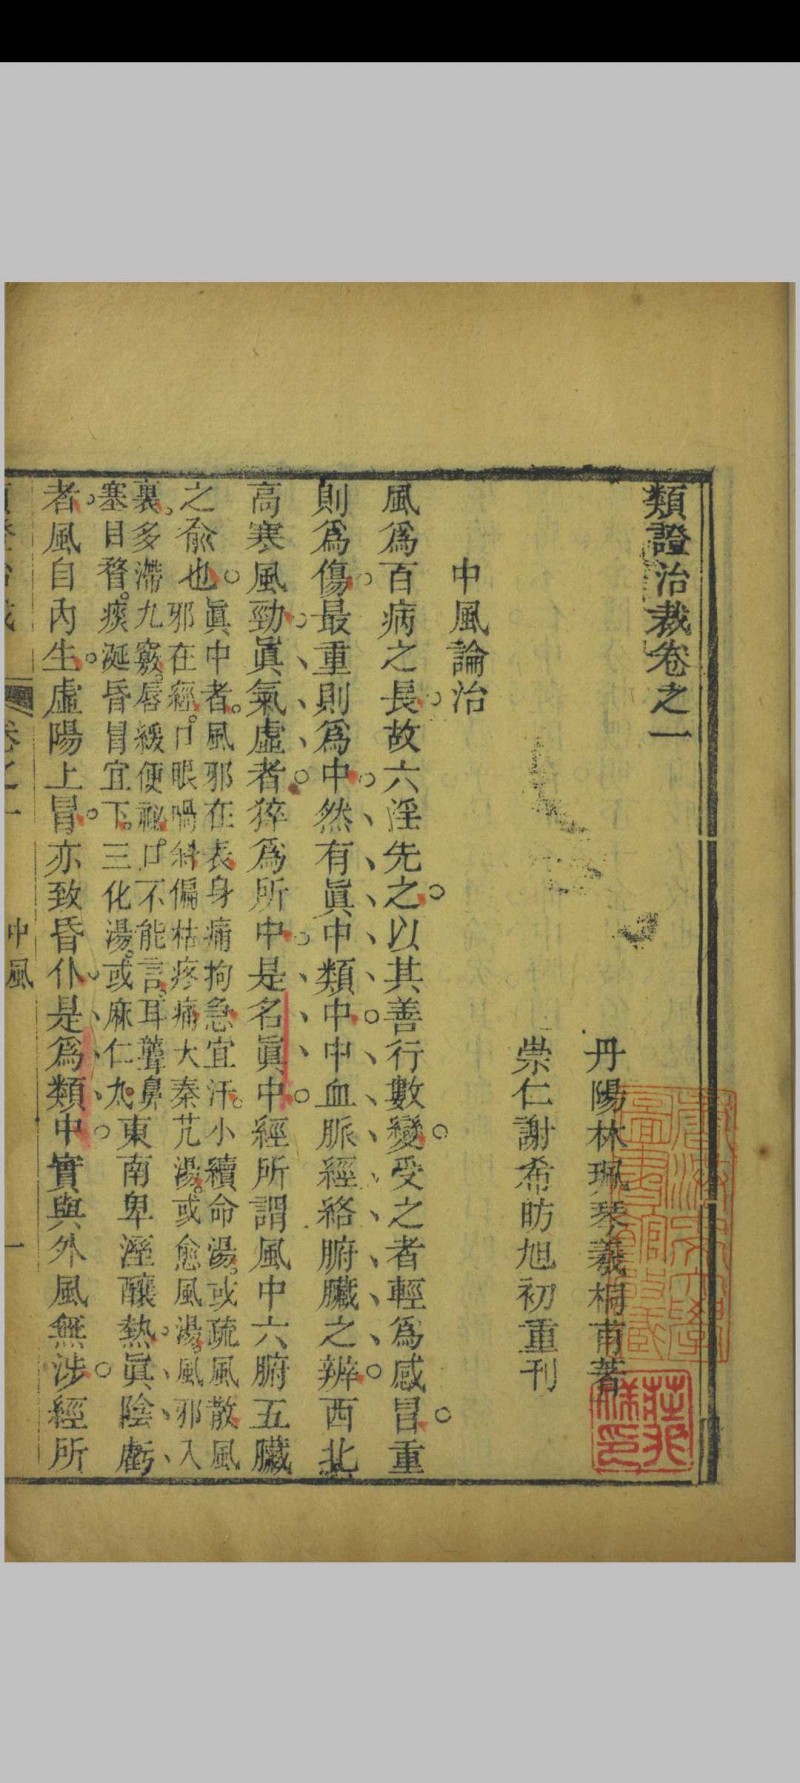 類證治裁卷之一
丹陽林珮琴羲桐甫著
崇仁謝希昉旭初重刊
中風論治
風爲百病之長故六淫先之以其善行數變受之者輕爲感冒重
則爲傷最重則爲中然有眞中類中中血脈經絡腑臟之辨西北
高寒風勁眞氣虛者猝爲所中是名眞中經所謂風中六腑五臟
之俞也
眞中者風邪在表身痛拘急宜汗小續命湯或疏風散風
邪在經口眼喎斜偏枯疼痛大秦艽湯或愈風湯風邪入
裏多滯九竅唇緩便秘口不能言耳聾鼻
塞目瞀痰涎昏冒宜下三化湯或麻仁丸
東南卑溼釀熱眞陰虧
者風自內生虛陽上冒亦致昏仆是爲類中實與外風無涉經所
類證治裁
卷之一
中風
一